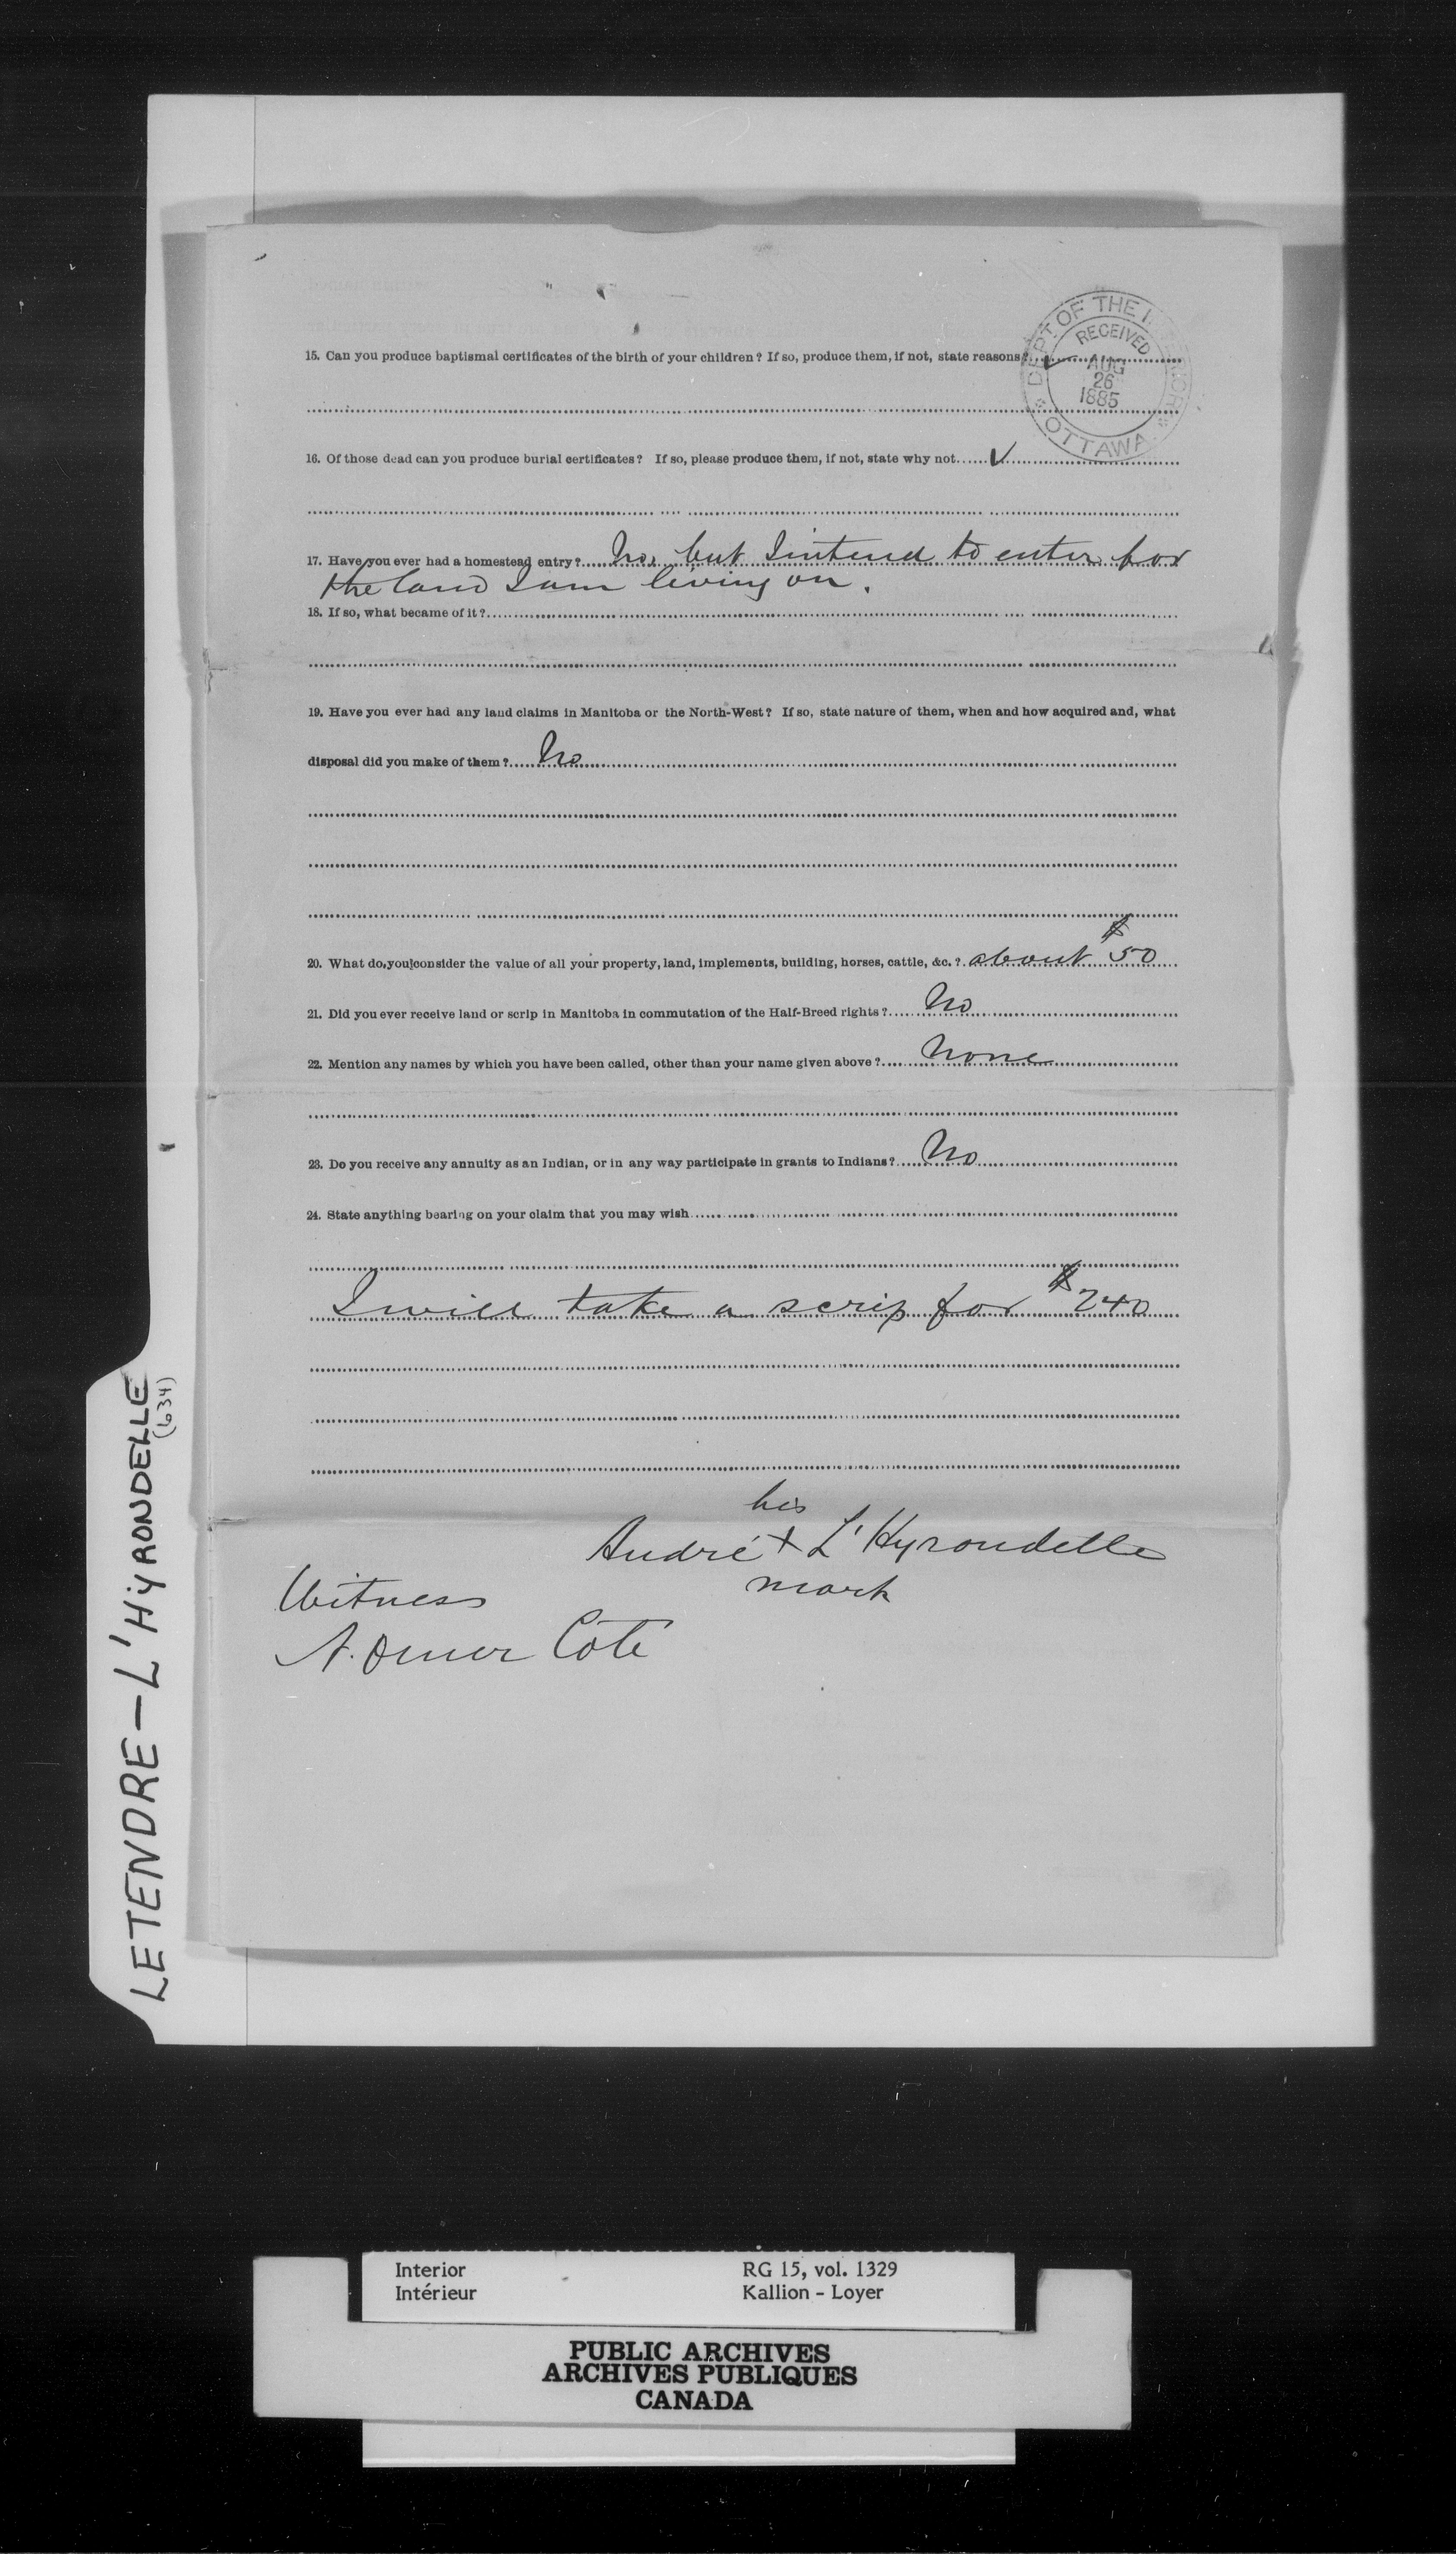 DEPT OF THE INTERIOR
RECEIVED
AUG
26
1885
OTTAWA
15. Can you produce baptismal certificates of the birth of your children? If so, produce them, if not, state reasons? ✓
16. Of those dead can you produce burial certificates? If so, please produce them, if not, state why not ✓
17. Have you ever had a homestead entry? No, but I intend to enter for
the land I am living on.
18. If so, what became of it?
19. Have you ever had any land claims in Manitoba or the North-West? If so, state nature of them, when and how acquired and, what
disposal did you make of them? No
20. What do you consider the value of all your property, land, implements, building, horses, cattle, &c.? about $50
21. Did you ever receive land or scrip in Manitoba in commutation of the Half-Breed rights? No
22. Mention any names by which you have been called, other than your name given above? None
23. Do you receive any annuity as an Indian, or in any way participate in grants to Indians? No
24. State anything bearing on your claim that you may wish
I will take a scrip for $240
his
André + L'Hyrondelle
mark
Witness
N. Omer Coté
LETENDRE - L'HYRONDELLE
(634)
Interior
Intérieur
RG 15, vol. 1329
Kallion - Loyer
PUBLIC ARCHIVES
ARCHIVES PUBLIQUES
CANADA